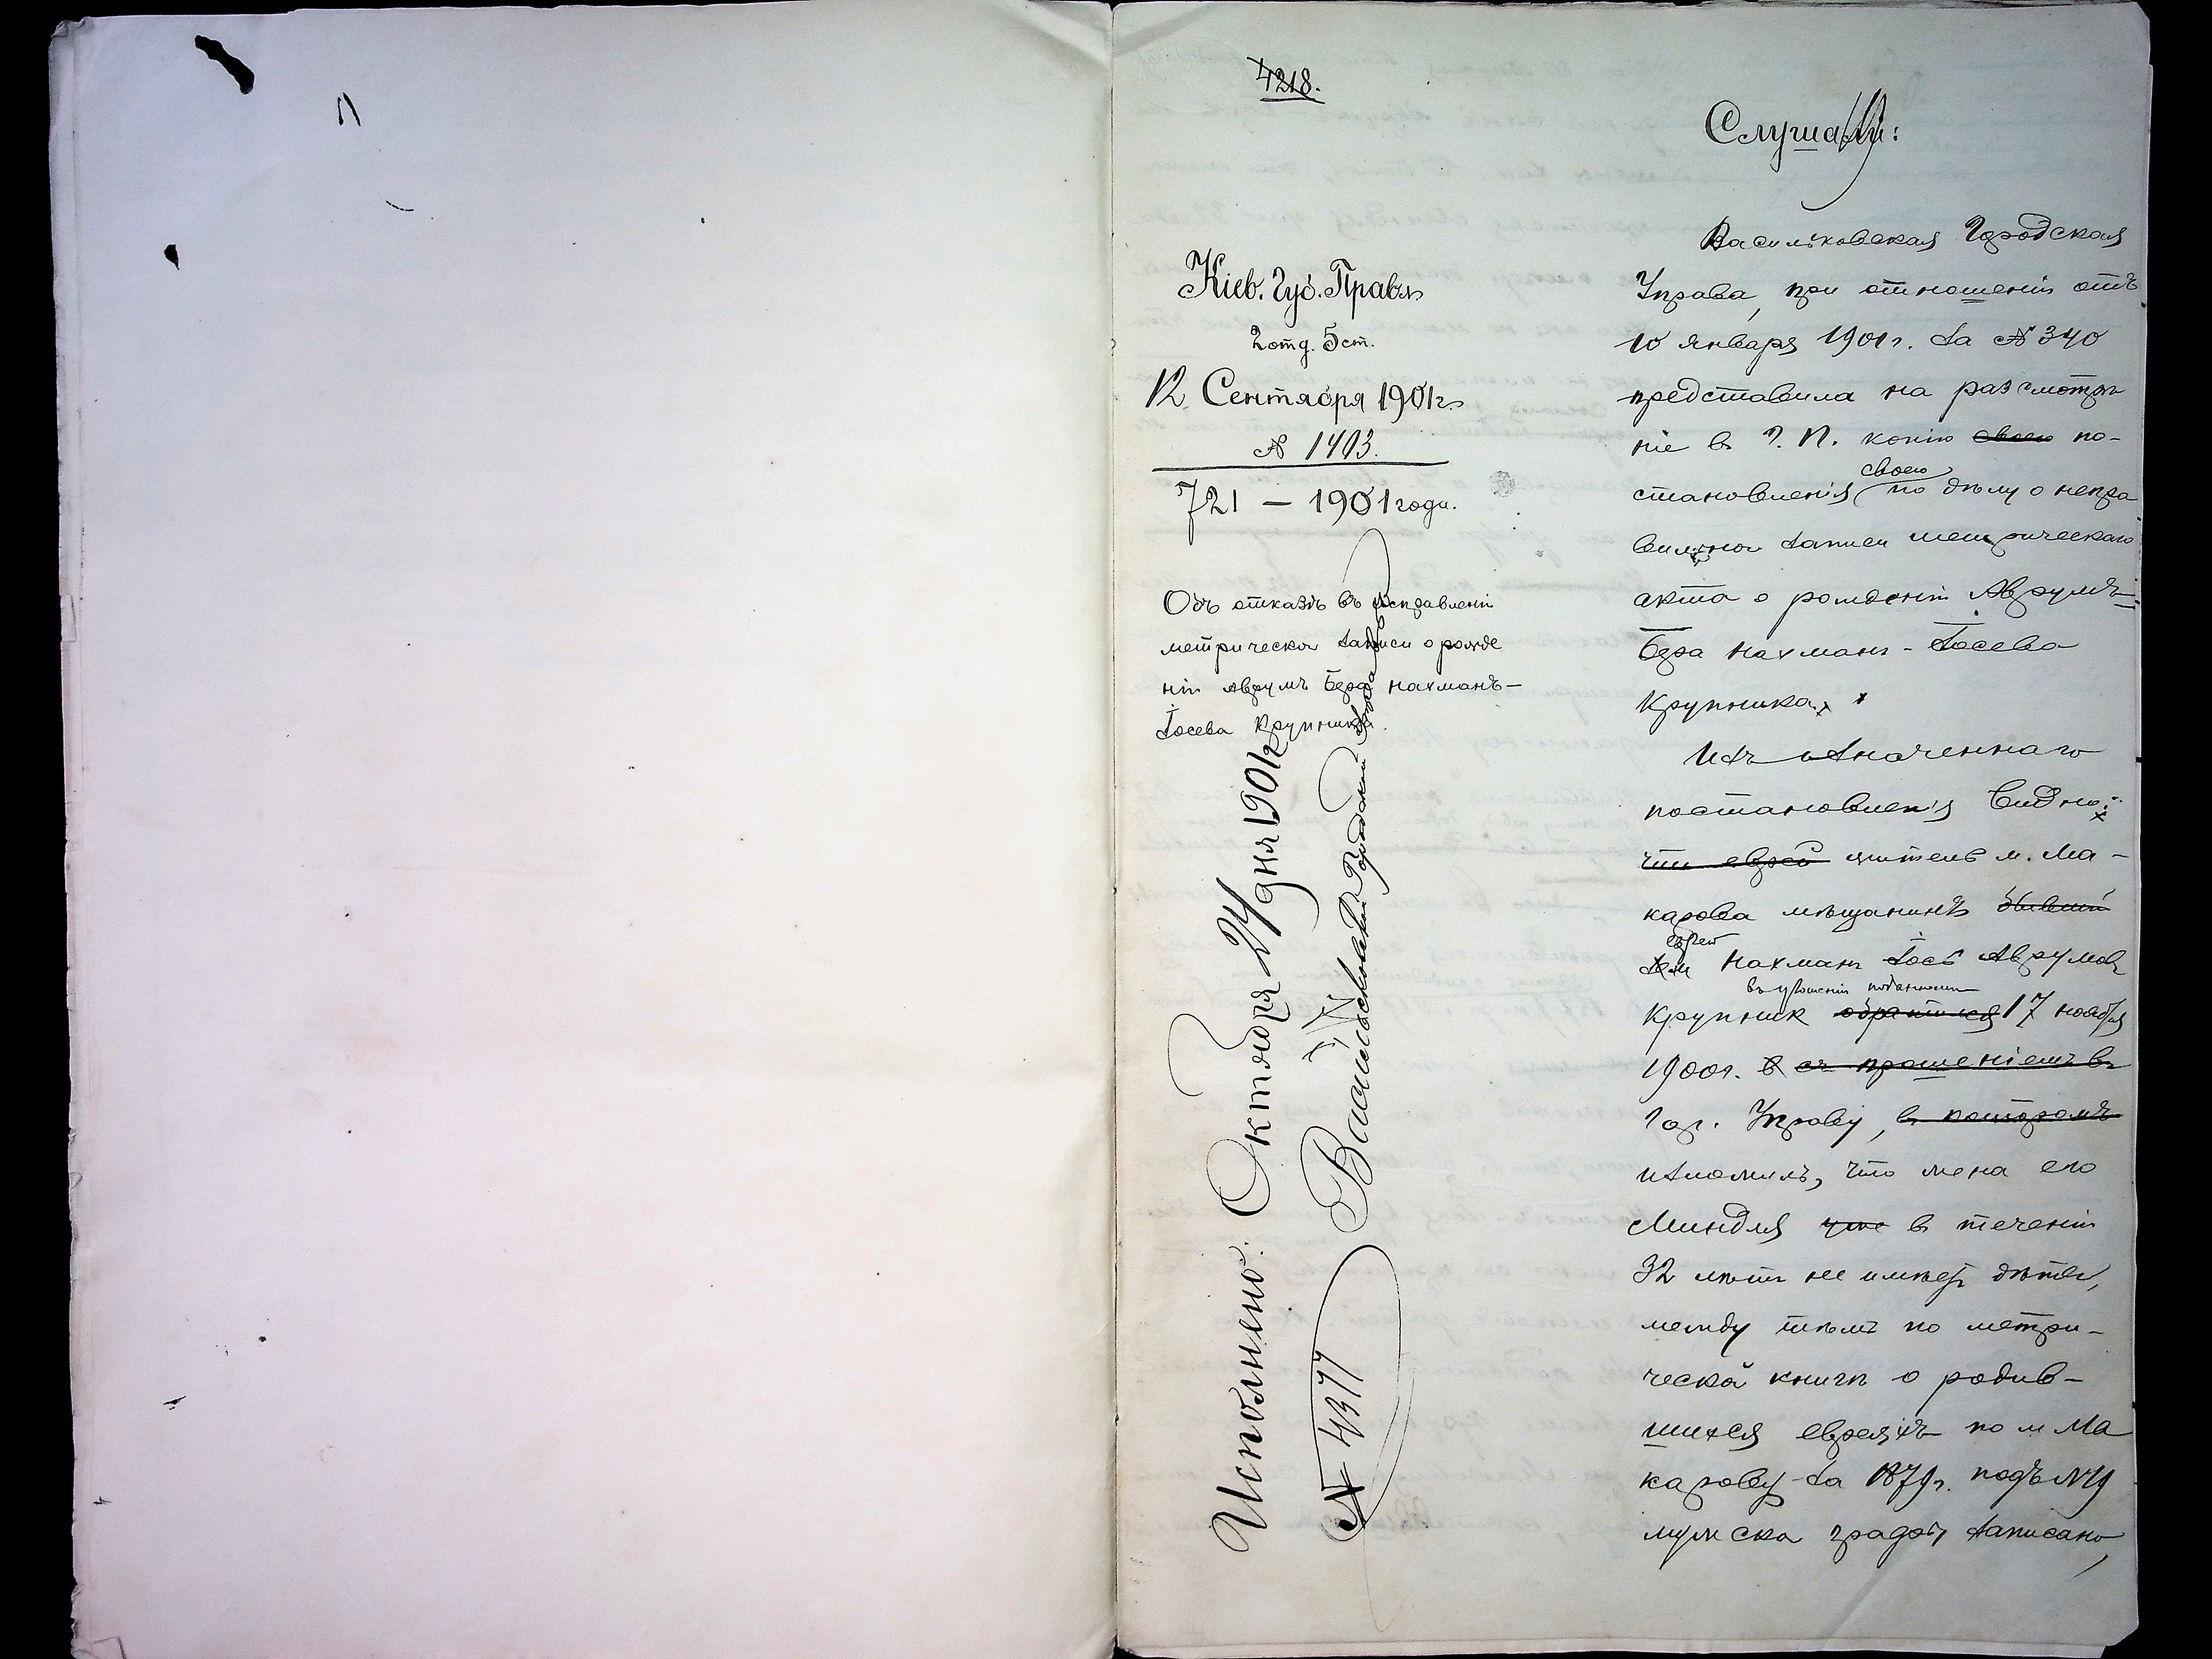 4218.
Слушали:
Кіев. Губ. Правл
2 отд. 5 ст.
12 Сентября 1901 г.
№ 1403.
721 — 1901 года.
Объ отказѣ въ исправленіи
метрической записи о рожде
ніи Аврумъ Бера Нахманъ-
Іосева Крупника.
Исполнено: Октября 24 дня 1901 г.
№ 4377 Васильковской Городской Управѣ
Васильковская Городская
Управа, при отношеніи отъ
10 января 1901 г. за № 340
представила на разсмотрѣ
ніе в Г. П. копію своего по-
становленія своего по дѣлу о непра
вильной записи метрическаго
акта о рожденіи Аврумъ-
Бера Нахман-Іосева
Крупника.
Изъ означеннаго
постановленія видно:
что еврей житель м. Ма-
карова мѣщанинъ бывшій
еврей
Нахман Іось Аврумов
въ прошеніи поданномъ
Крупник обратился 17 ноября
1900 г. в съ прошеніемъ въ
Гор. Управу, въ которомъ
изложилъ, что жена его
Миндля уже в теченіи
32 лѣтъ не имѣетъ дѣтей,
между тѣмъ по метри-
ческой книгѣ о родив-
шихся евреяхъ по м Ма
карову за 1879 г. подъ № 9
мужска графы записано,